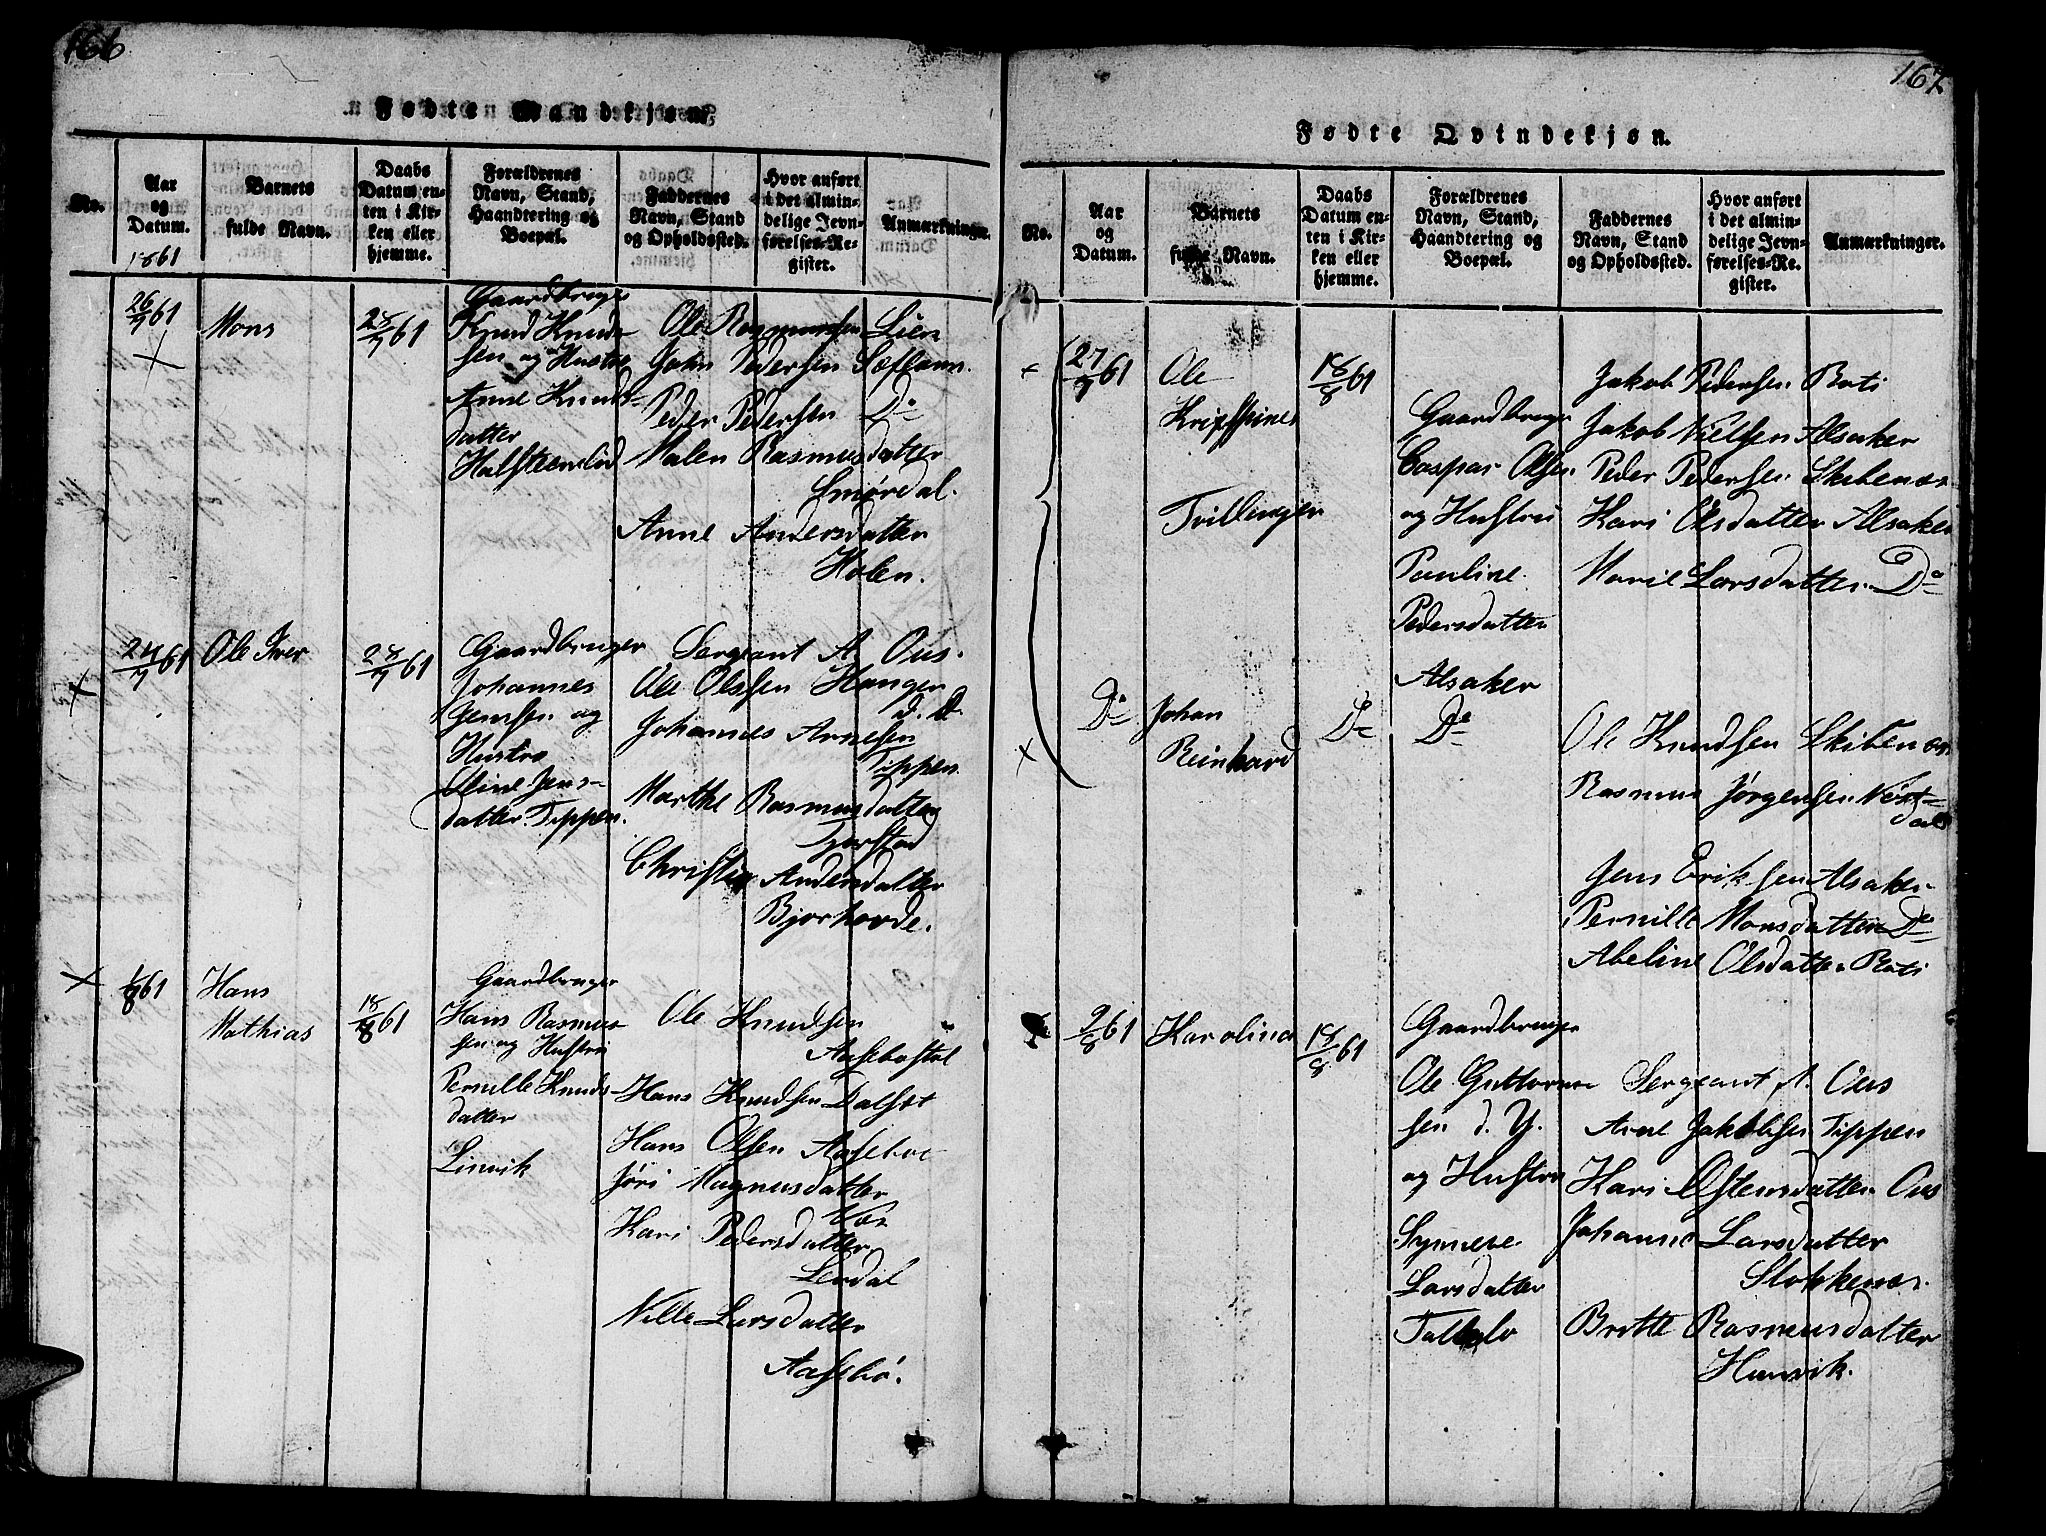 166
Fødte Mandkjøn.
No.
Aar og Datum.
1861
Barnets fulde Navn.
Daabs Datum enten i Kirken eller hjemme.
Forældrenes Navn, Stand, Haandtering og Boepæl.
Faddernes Navn, Stand og Opholdssted.
Hvor anført i det almindelige Jevnførelses-Register.
Anmærkninger.
26/7 61
Mons
28/7 61
Gaardbruger
Knud Knud-
sen og Hustro
Anne Knuds-
datter
Halsteenslid
Ole Rasmussen Lien
John Pedersen Sæflann.
Peder Pedersen Do
Malen Rasmusdatter
Smørdal.
Anne Andersdatter
Holen.
24/7 61
Ole Iver
28/7 61
Gaardbruger
Johannes
Jenssen og
Hustro
Oline Jens-
datter Tippen.
Sergeant A Ous.
Ole Olssen Hangen
Johannes Arnesen
Tippen
Marthe Rasmusdatter
Tjørstad
Christi Andersdatter
Bjørhovde.
1/8 61
Hans
Mathias
18/8 61
Gaardbruger
Hans Rasmus-
sen og Hustru
Pernille Knuds-
datter
Linvik
Ole Knudsen
Aasebøstøl
Hans Knudsen Dalset
Hans Olsen Aasebøe
Jøri Magnusdatter
Næs
Kari Pedersdatter
Lerdal
Nille Larsdatter
Aasebø.
167
Fødte Qvindekjøn.
No.
Aar og Datum.
Barnets fulde Navn.
Daabs Datum enten i Kirken eller hjemme.
Forældrenes Navn, Stand, Haandtering og Boepæl.
Faddernes Navn, Stand og Opholdssted.
Hvor anført i det almindelige Jevnførelses-Register.
Anmærkninger.
27/7 61
Ole
Krispines
Tvillinger
18/8 61
Gaardbruger
Caspar Olsen
og Hustru
Pauline
Pedersdatter
Alsaker
Jakob Pedersen Bati
Jakob Nielsen Alsaker
Peder Pedersen Skibenes
Kari Olsdatter Alsaker
Marie Larsdatter Do
Do
Johan
Reinhard
Do
Do
Ole Knudsen Skibenes
Rasmus Jørgensen Nøst-
dal
Jens Eriksen Alsaker
Pernille Monsdatter Do
Abeline Olsdatter Bati
9/8 61
Karolina
18/8 61
Gaardbruger
Ole Guttorm-
sen d. Y.
og Hustru
Synneve
Larsdatter
Sergeant A. Ous
Arne Jakobsen Tippen
Kari Østensdatter Ous
Johanne Larsdatter
Stokkenes.
Britte Rasmusdatter
Humvik.